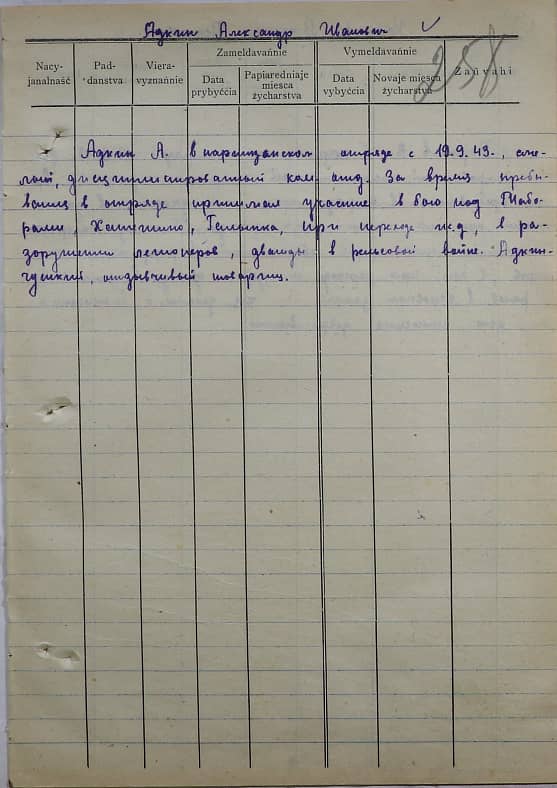 Адкин Александр Иванович
258
Nacy-
janalnaść
Pad-
danstva
Viera-
vyznańnie
Zameldavańnie
Data
prybyćcia
Papiaredniaje
miesca
žycharstva
Vymeldavańnie
Data
vybyćcia
Novaje miesca
žycharstva
Zaŭvahi
Адкин А. в партизанском отряде с 19.9.43., сме-
лый, дисциплинированный ком. отд. За время пребы-
вания в отряде принимал участие в бою под Табо-
рами, при переходе ж.д., в ра-
зоружении легионеров, дважды в рельсовой войне. Адкин-
чуткий, отзывчивый товарищ.